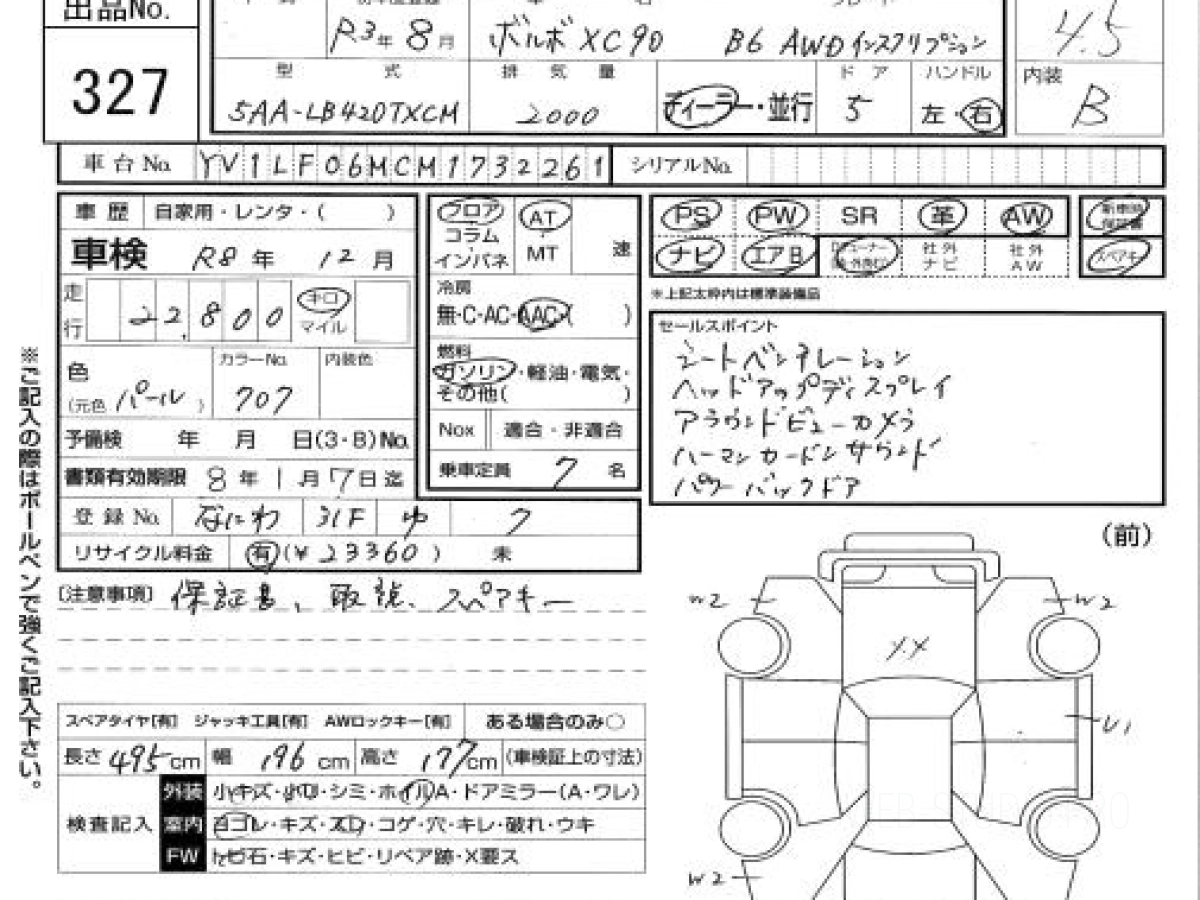 出品No.
R3年 8月 ボルボ XC90 B6 AWD インスクリプション 4.5
327
型式 排気量 ドア ハンドル 内装
5AA-LB420TXCM 2000 ディーラー・並行 5 左・右 B
車台No. YV1LF06MCM1732261 シリアルNo.
車歴 自家用・レンタ・( )
車検 R8年 12月
走行 22,800 キロ マイル
色 (元色 パール ) カラーNo. 707 内装色
予備検 年 月 日(3・8)No.
書類有効期限 8年 1月 7日迄
登録No. なにわ 31F ゆ 7
リサイクル料金 有(¥23360) 未
フロア コラム インパネ
AT MT 速
冷房
無・C・AC・AAC・( )
燃料
ガソリン・軽油・電気・
その他( )
Nox 適合・非適合
乗車定員 7 名
PS PW SR 革 AW 新車時保証書
ナビ エアB 社外ナビ 社外AW スペアキー
※上記太枠内は標準装備品
セールスポイント
シートベンチレーション
ヘッドアップディスプレイ
アラウンドビューカメラ
ハーマンカードンサウンド
パワーバックドア
※ご記入の際はボールペンで強くご記入下さい。
〔注意事項〕 保証書、取説、スペアキー
スペアタイヤ[有] ジャッキ工具[有] AWロックキー[有] ある場合のみ○
長さ 495cm 幅 196cm 高さ 177cm (車検証上の寸法)
検査記入
外装 小キズ・小U・シミ・ホイルA・ドアミラー(A・ワレ)
室内 ヨゴレ・キズ・スレ・コゲ・穴・キレ・破れ・ウキ
FW トビ石・キズ・ヒビ・リペア跡・X要ス
(前)
W2 W2
Y.X
U1
W2